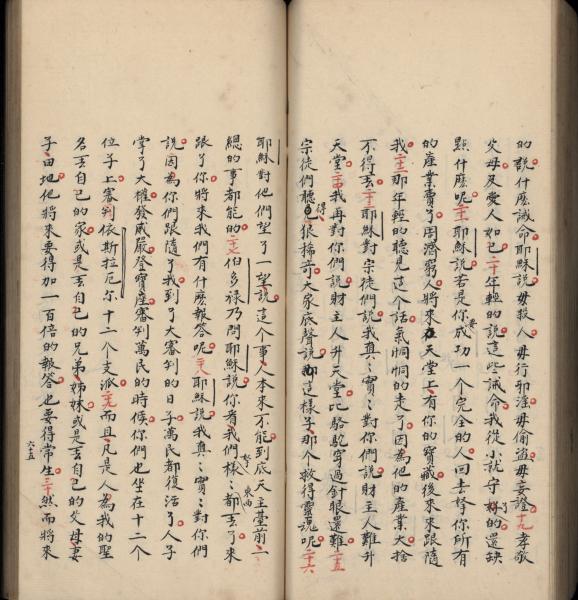 的說什麽誡命耶穌說毋殺人毋行邪淫毋偷盜毋妄證十九孝敬
父母及愛人如己二十年輕的說這些誡命我從小就守好了的還缺
點什麽呢二一耶穌說若是你要成功一个完全的人回去拏你所有
的產業賣了周濟窮人將來在天堂上有你的寶藏後來來跟隨
我二二那年輕的聽見這个話氣悯悯的走了因為他的產業大捨
不得丟二三耶穌對宗徒們說我真〻實〻對你們說財主人難升
天堂二四我再對你們說財主人升天堂比駱駝穿過針眼還難二五
宗徒們聽得狠稀奇大家底聲說這樣子那个救得靈魂呢二六
耶穌對他們望了一望說這个事人本來不能到底天主臺前一
總的事都能的二七伯多祿乃問耶穌說你看我們樣〻東西都丟了來
跟了你將來我們有什麽報答呢二八耶穌說我真〻實〻對你們
說因為你們跟隨了我到了大審判的日子萬民都復活了人子
掌了大權發威嚴登寶座審判萬民的時候你們也坐在十二个
位子上審判依斯拉厄尔十二个支派二九而且凡是人為我的聖
名丟自己的家或是丟自己的兄弟姊妹或是丟自己的父母妻
子田地他將來要得加一百倍的報答也要得常生三十然而將來
六五